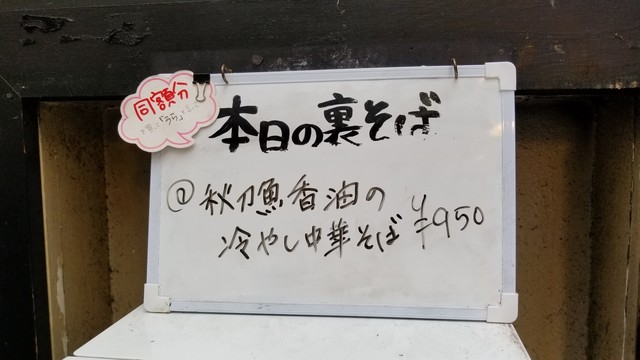 同額分
本日の裏そば
@秋刀魚香油の
冷やし中華そば ¥950